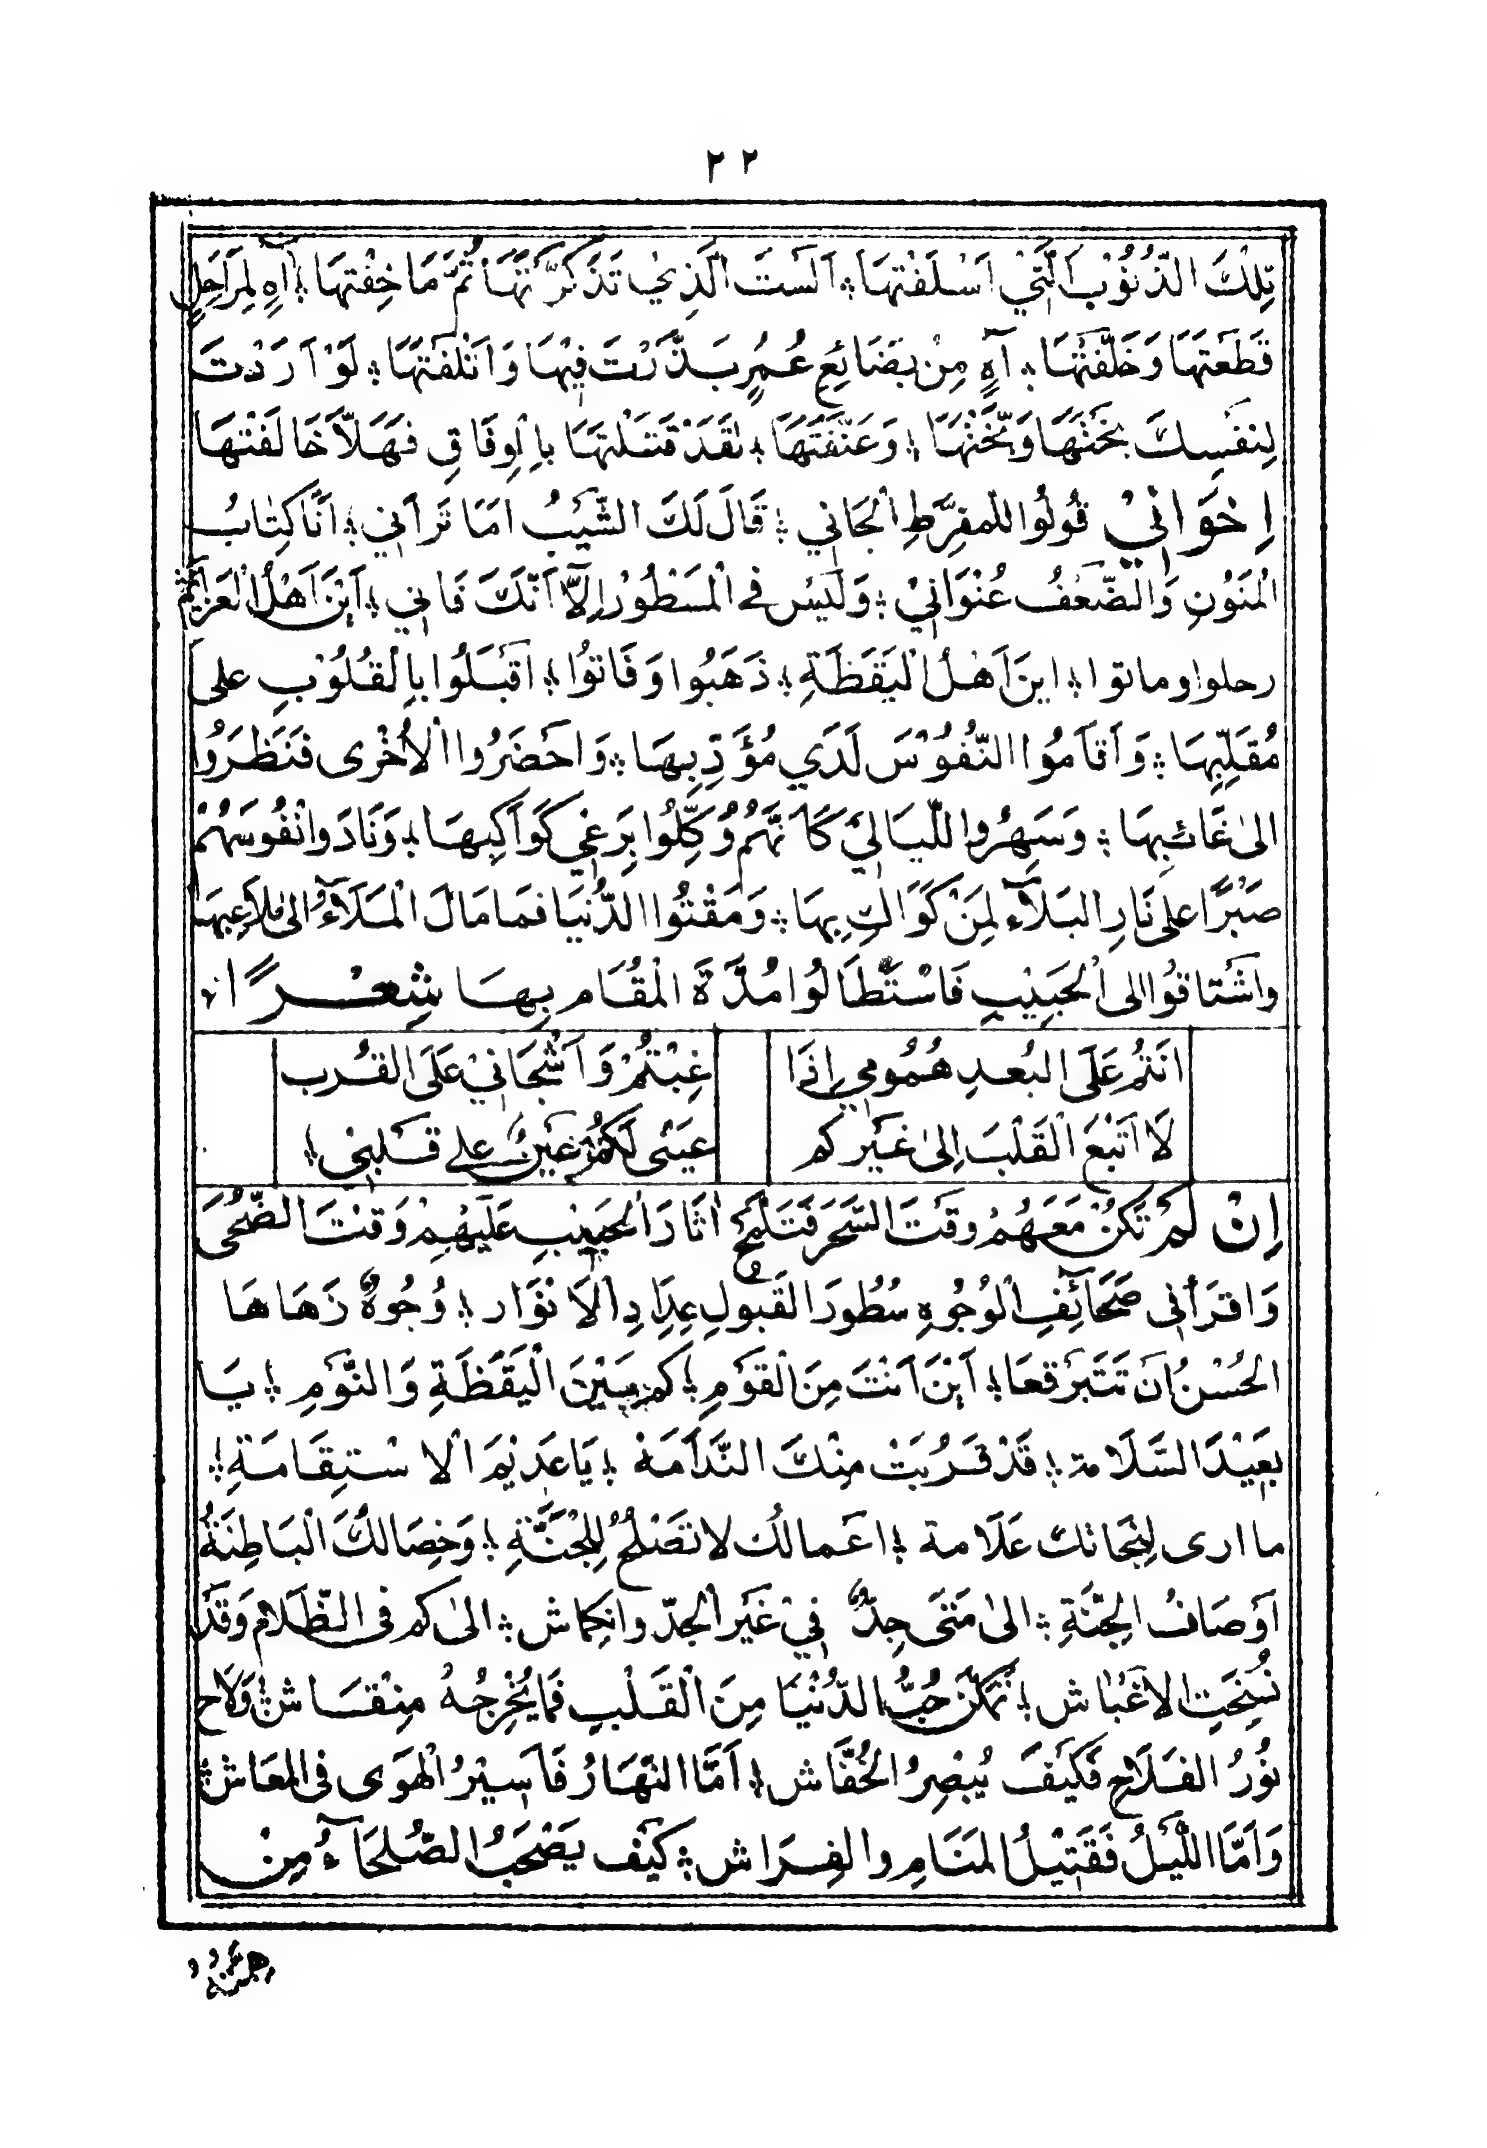 ٢٢
تِلْكَ الذُّنُوْبَ الَّتِيْ اَسْلَفْتَهَا ؞ اَلَسْتَ الَّذِيْ تَذَكَّرْتَهَا ثُمَّ مَا خِفْتَهَا ؞ اٰهِ لِمَرَاحِلِ
قَطَعْتَهَا وَخَلَّفْتَهَا ؞ آهٍ مِنْ بَضَائِعِ عُمُرٍ بَذَّرْتَ فِيْهَا وَاَتْلَفْتَهَا ؞ لَوْ اَرَدْتَ
لِنَفْسِكَ بِخَتْهَا وَبَخَّنْتَهَا ؞ وَعَنَّفْتَهَا ؞ لَقَدْ قَتَلْتَهَا بِالْوِفَاقِ فَهَلَّا خَالَفْتَهَا
اِخْوَانِيْ قُولُوا لِلمفرِّطِ الْجَانِي ؞ قَالَ لَكَ الشَّيْبُ اَمَا تَرَانِي ؞ اَنَا كِتَابُ
الْمَنُوْنِ وَالضَّعْفُ عُنْوَانِيْ ؞ وَلَيْسَ فِي الْمَسْطُوْرِ اِلَّا اَنَّكَ فَانِي ؞ اَيْنَ اَهْلُ الْعَزَآئِمِ
رحلوا وماتوا ؞ اين اَهْلُ الْيَقَظَةِ ؞ ذَهَبُوا وَفَاتُوْا ؞ اَقْبَلُوا بِالْقُلُوْبِ عَلى
مُقَلِّبِهَا ؞ وَ اَقَامُوا النُّفُوْسَ لَدَي مُؤَدِّبِهَا ؞ وَاَحْضَرُوا الْاُخْرٰى فَنَظَرُوا
اِلىٰ غَائِبِهَا ؞ وَسَهِرُوا اللَّيَالِيَ كَاَنَّهُمْ وُكِّلُوا بِرَعْيِ كَوَاكِبِهَا ؞ وَنَادَوا نُفُوسَهُمْ
صَبْرًا عَلى نَارِ البَلَآءِ لِمَنْ كَوَاكِ بِهَا ؞ وَمَقَتُوا الدُّنْيَا فَمَا مَالَ الْمَلَآءُ اِلىٰ مَلَاعِبِهَا
وَاشْتَاقُوْا اِلى الْحَبِيْبِ فَاسْتَطَالُوا مُدَّةَ الْمُقَامِ بِهَا شِعْرًا
اَنْتُمْ عَلَى البُعدِ هُمُومِي اِذَا غِبْتُمْ وَ اَشْجَانِيْ عَلَى القُرب
لَا اَتْبَعَ الْقَلْبَ اِلىٰ غَيْرِكم عَيْنِى لَكُمْ عَيْنٌ عَلَى قَلْبِيْ ؞
اِنْ لَمْ تَكُنْ مَعَهُمْ وَقْتَ السَّحَرِ فَتَلَمَّحْ اٰثَارَ الْحَبِيْبِ عَلَيْهِمْ وَقْتَ الضُّحٰى
وَاقْرَأْ فِي صَحَآئِفِ الْوُجُوْهِ سُطُورَ القَبُولِ بِمِدَادِ الْاَنْوَارِ ؞ وُجُوْهٌ زَهَاهَا
الْحُسْنُ اَنْ تَتَبَرْقَعَا ؞ اَيْنَ اَنْتَ مِنَ الْقَوْمِ ؞ كَمْ بَيْنَ الْيَقَظَةِ وَالنَّوْمِ ؞ يَا
بَعِيْدَ السَّلَامة ؞ قَدْ قَرُبَتْ مِنْكَ النَّدَامَةْ ؞ يَا عَدِيْمَ الْاسْتِقَامَةِ ؞
ما ارى لِنَجَاتك عَلَامة ؞ اَعْمَالُكَ لَا تَصْلُحُ لِلْجَنَّةِ ؞ وَخِصَالُكَ الْبَاطِنَةُ
اَوْصَافُ الجِنَّةِ ؞ الىٰ مَتٰى جِدٌّ فِيْ غَيْرِ الْجِدّ وانكِماش ؞ الىٰ كم فى الظَّلَام وَقَدْ
نُسِخَتِ الْاَغْبَاش ؞ تَمَكَّنَ حُبُّ الدُّنْيَا مِنَ الْقَلْبِ فَمَا يُخْرِجُهُ مِنْقَاش ؞ وَلَاحَ
نُوْرُ الفَلَاحِ فَكَيْفَ يُبْصِرُ الْخُفَّاش ؞ اَمَّا النَّهَارُ فَاَسِيْرُ الْهَوٰى فِى الْمَعَاش ؞
وَاَمَّا اللَّيْلُ فَقَتِيْلُ المَنَامِ وَالْفِرَاش ؞ كَيْفَ يَصْحَبُ الصُّلَحَآءُ مِنْ